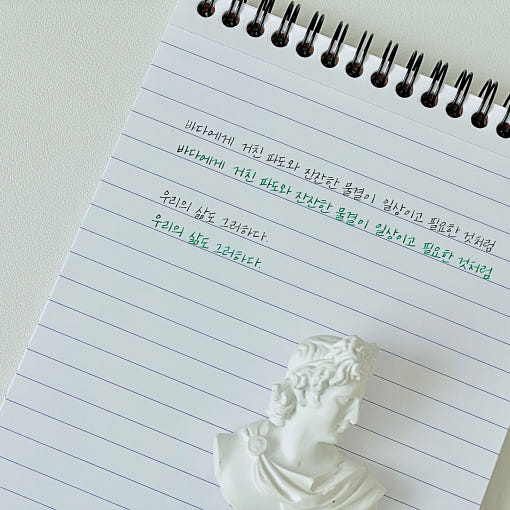 바다에게 거친 파도와 잔잔한 물결이 일상이고 필요한 것처럼
바다에게 거친 파도와 잔잔한 물결이 일상이고 필요한 것처럼
우리의 삶도 그러하다.
우리의 삶도 그러하다.